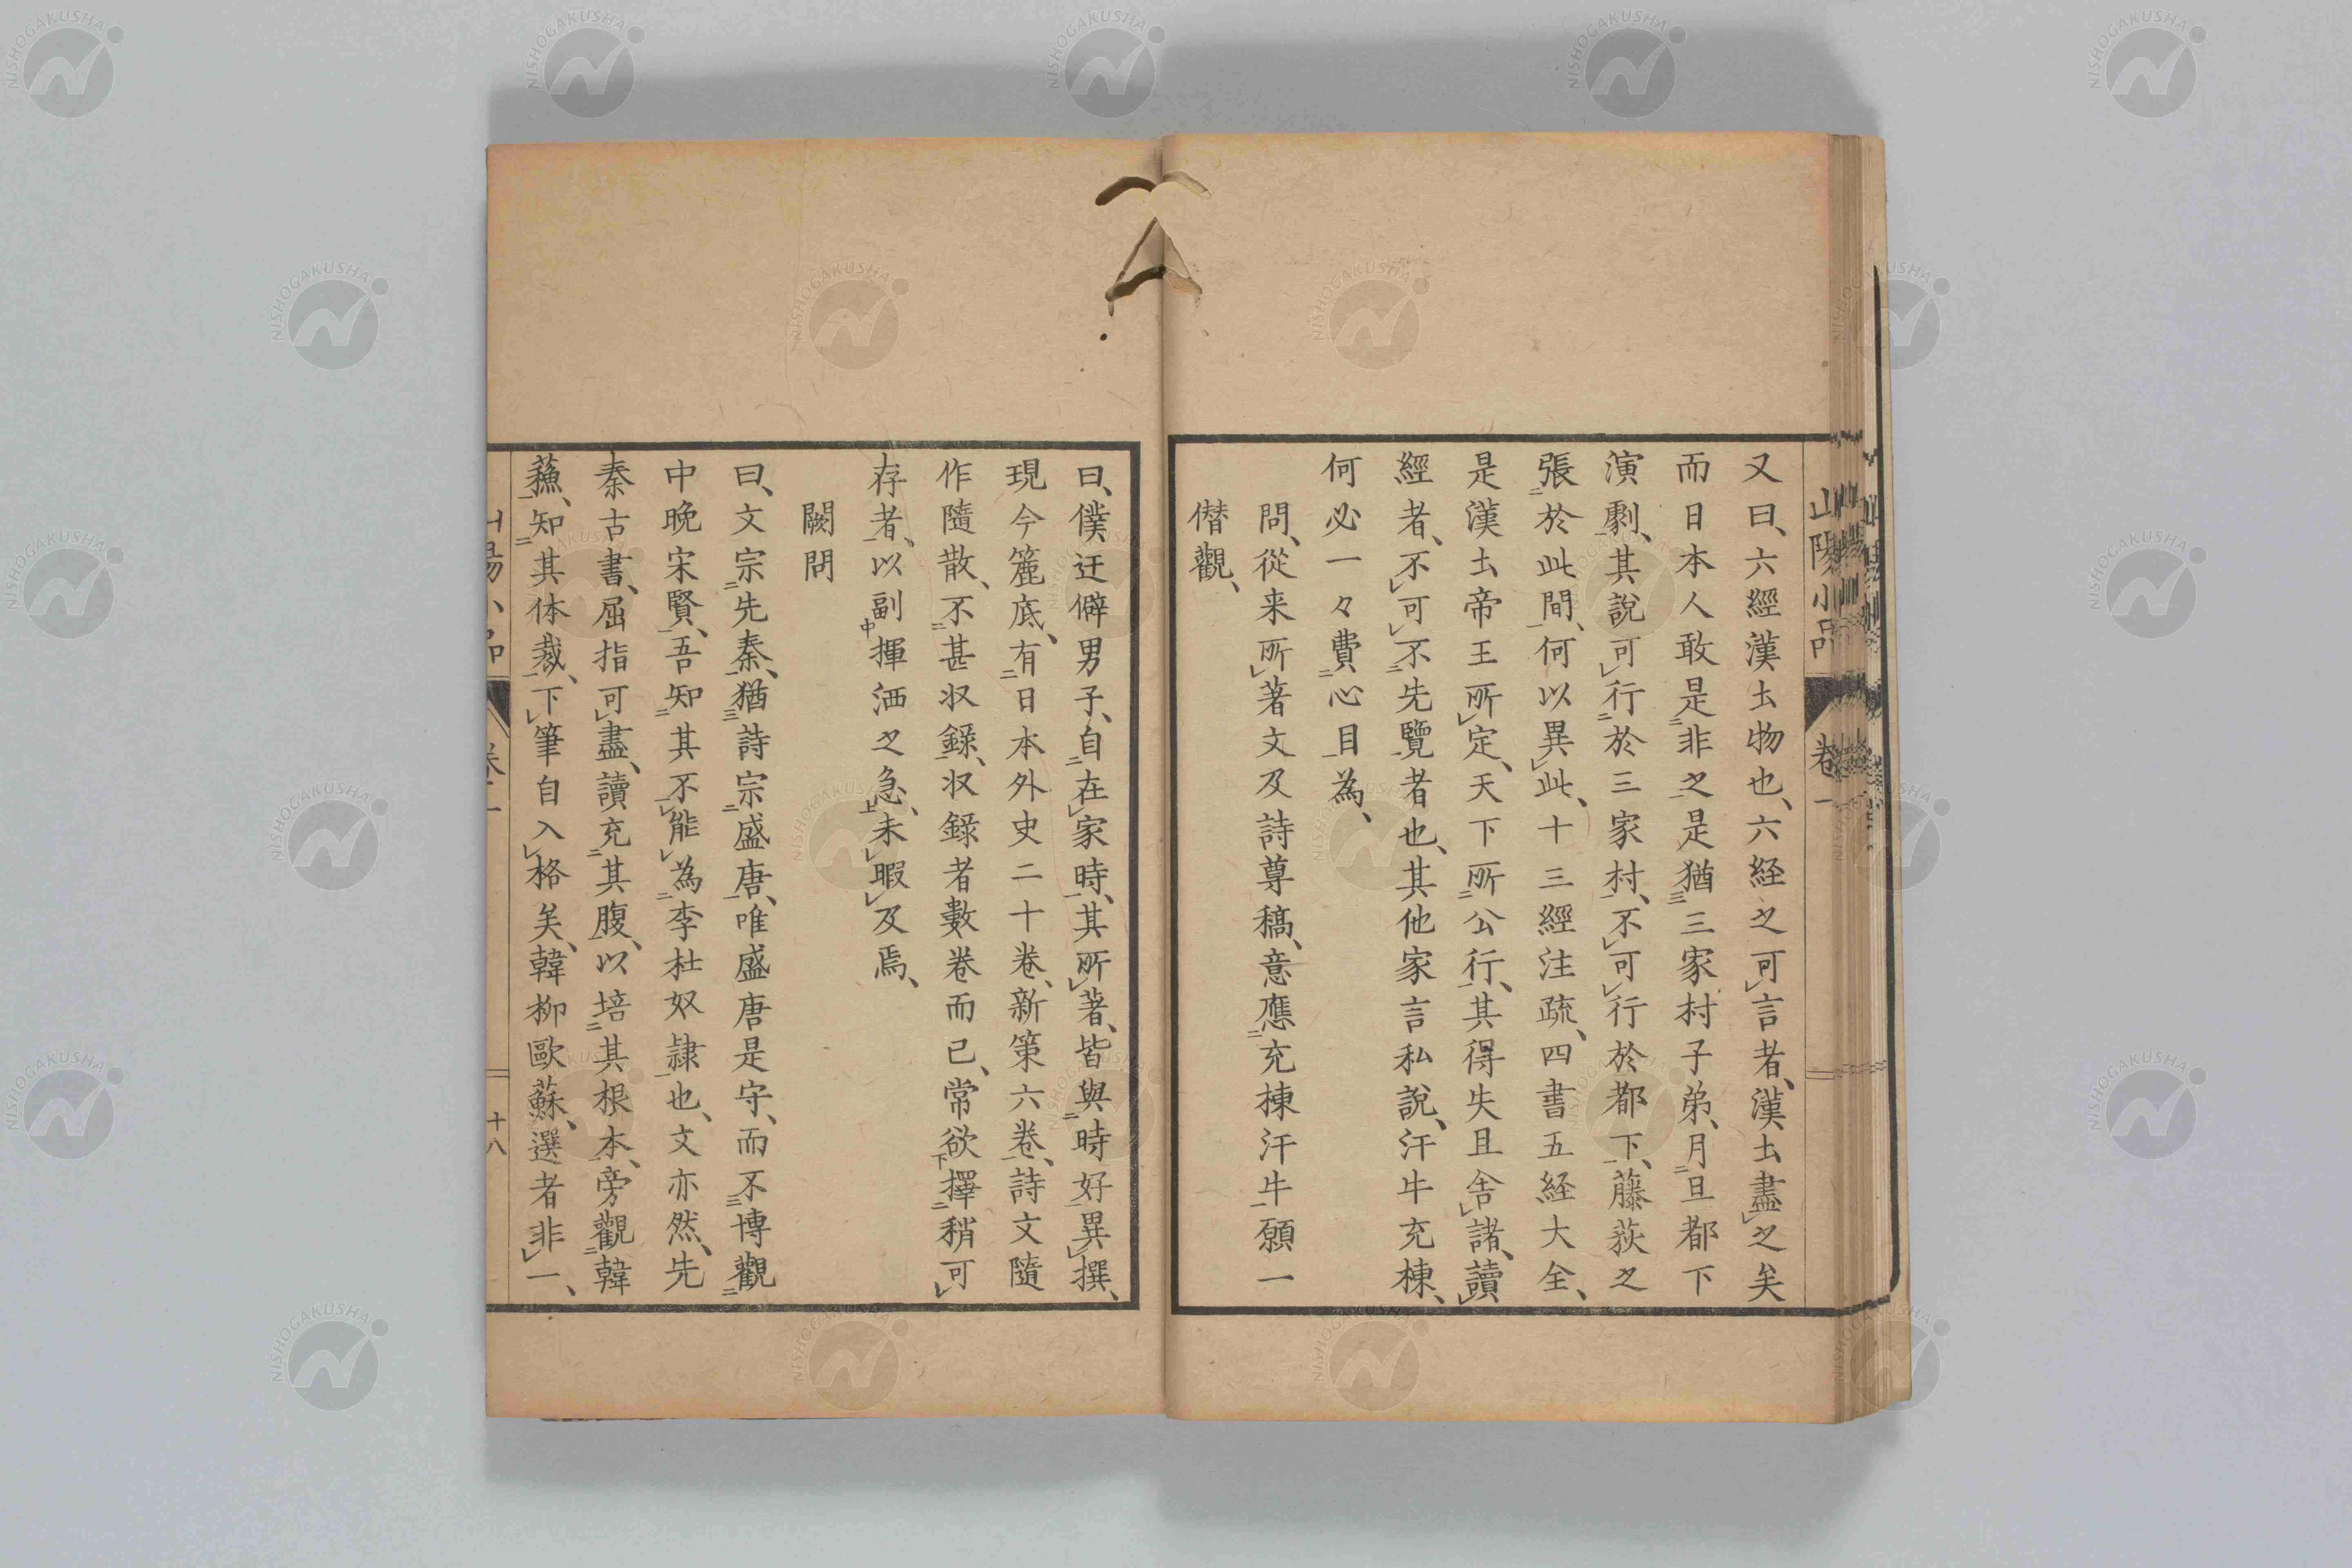 山陽小品 卷一
又曰、六經漢土物也、六経之可言者、漢土盡之矣
而日本人敢是非之是猶三家村子弟、月旦都下
演劇、其說可行於三家村、不可行於都下、藤荻之
張於此間、何以異此、十三經注疏、四書五経大全、
是漢土帝王所定、天下所公行、其得失且舎諸、讀
經者、不可不先覽者也、其他家言私說、汗牛充棟、
何必一々費心目為、
問、從来所著文及詩尊稿、意應充棟汗牛願一
僣觀、
曰、僕迂僻男子、自在家時、其所著、皆與時好異撰、
現今簏底、有日本外史二十卷、新策六卷、詩文隨
作隨散、不甚収錄、収錄者數卷而已、常欲擇稍可
存者、以副揮洒之急、未暇及焉、
闕問
曰、文宗先秦、猶詩宗盛唐、唯盛唐是守、而不博觀
中晚宋賢、吾知其不能為李杜奴隷也、文亦然、先
秦古書、屈指可盡、讀充其腹、以培其根本、旁觀韓
蘓、知其体裁、下筆自入格矣、韓柳歐蘇、選者非一、
山陽小品 卷一 十八